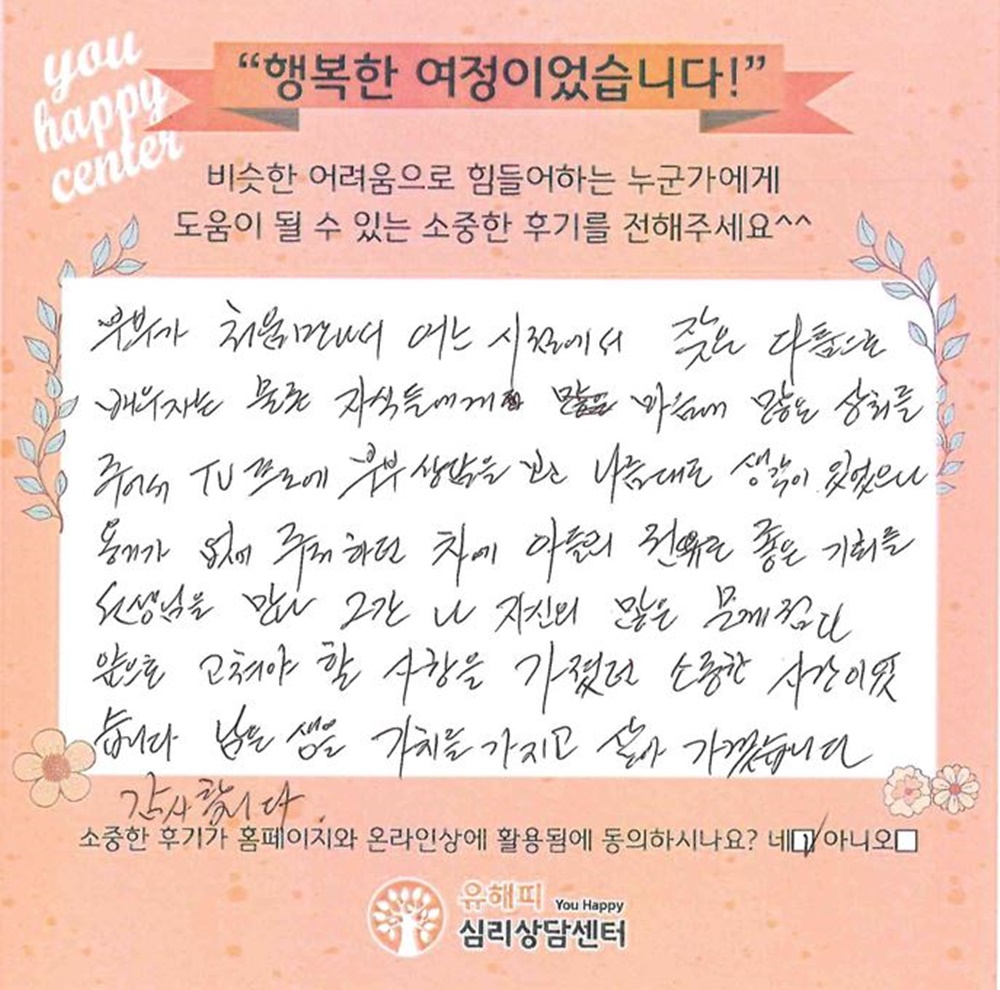 you
happy
center
“행복한 여정이었습니다!”
비슷한 어려움으로 힘들어하는 누군가에게
도움이 될 수 있는 소중한 후기를 전해주세요^^
부부가 처음만나서 어느 시점에서 잦은 다툼으로
배우자는 물론 자식들에게 마음에 많은 상처를
주어서 TV 프로에 부부상담을 보고 나름대로 생각이 있었으나
용기가 없어 주저하던 차에 아들의 권유로 좋은 기회를
선생님을 만나 그간 나 자신의 많은 문제점과
앞으로 고쳐야 할 사항을 가졌던 소중한 시간이었
습니다 남은 생을 가치를 가지고 살아 가겠습니다
감사합니다.
소중한 후기가 홈페이지와 온라인상에 활용됨에 동의하시나요? 네☑ 아니오□
유해피 You Happy
심리상담센터